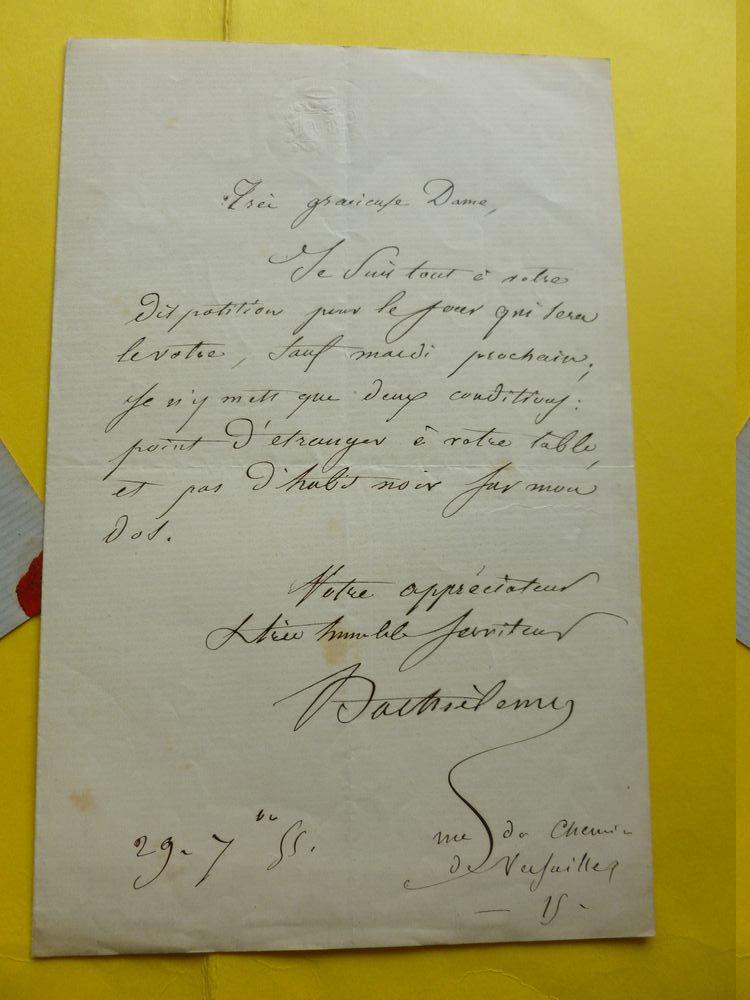 Très gracieuse Dame,
Je suis tout à votre
disposition pour le jour qui sera
le votre, sauf mardi prochain.
Je n'y mets que deux conditions:
point d'étranger à votre table,
et pas d'habit noir sur mon
dos.
Votre appréciateur
& très humble serviteur
Barthélemy
29 - 7bre 55.
rue du Chemin
de Versailles
— 15 -